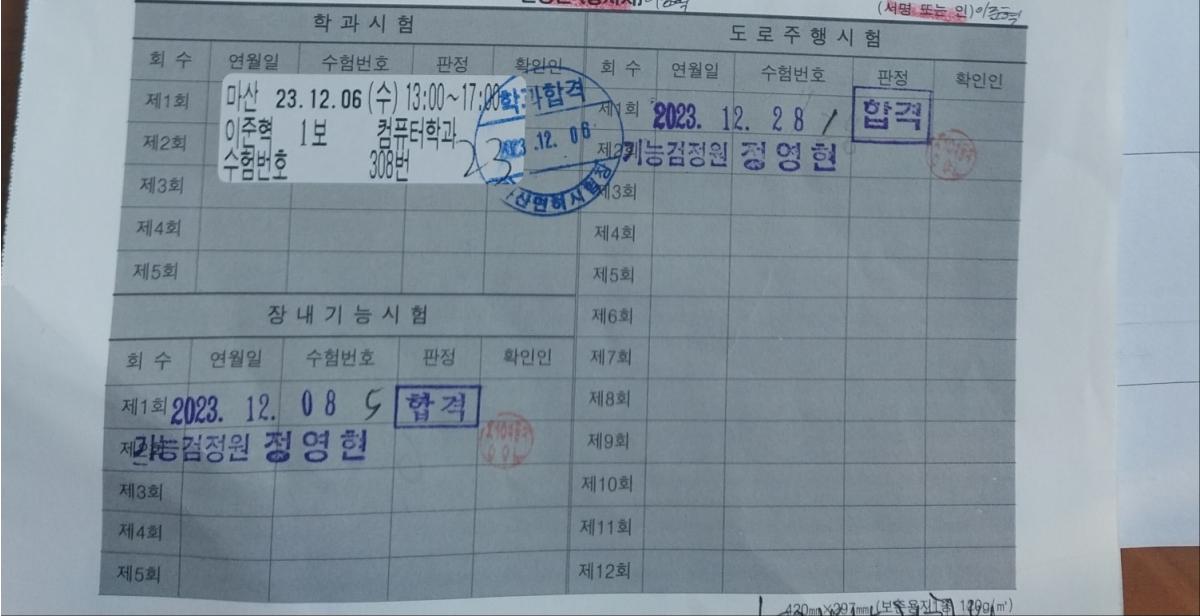 (서명 또는 인) 이준혁
학 과 시 험
회 수 연월일 수험번호 판정 확인인
제1회
마산 23.12.06 (수) 13:00~17:00
이준혁 1보 컴퓨터학과
수험번호 308번
학과합격
23
.12. 06
제2회
제3회
제4회
제5회
장 내 기 능 시 험
회 수 연월일 수험번호 판정 확인인
제1회 2023. 12. 08 5 합격
기능검정원 정영현
제3회
제4회
제5회
도 로 주 행 시 험
회 수 연월일 수험번호 판정 확인인
제1회 2023. 12. 28 1 합격
제2회 기능검정원 정영현
제3회
제4회
제5회
제6회
제7회
제8회
제9회
제10회
제11회
제12회